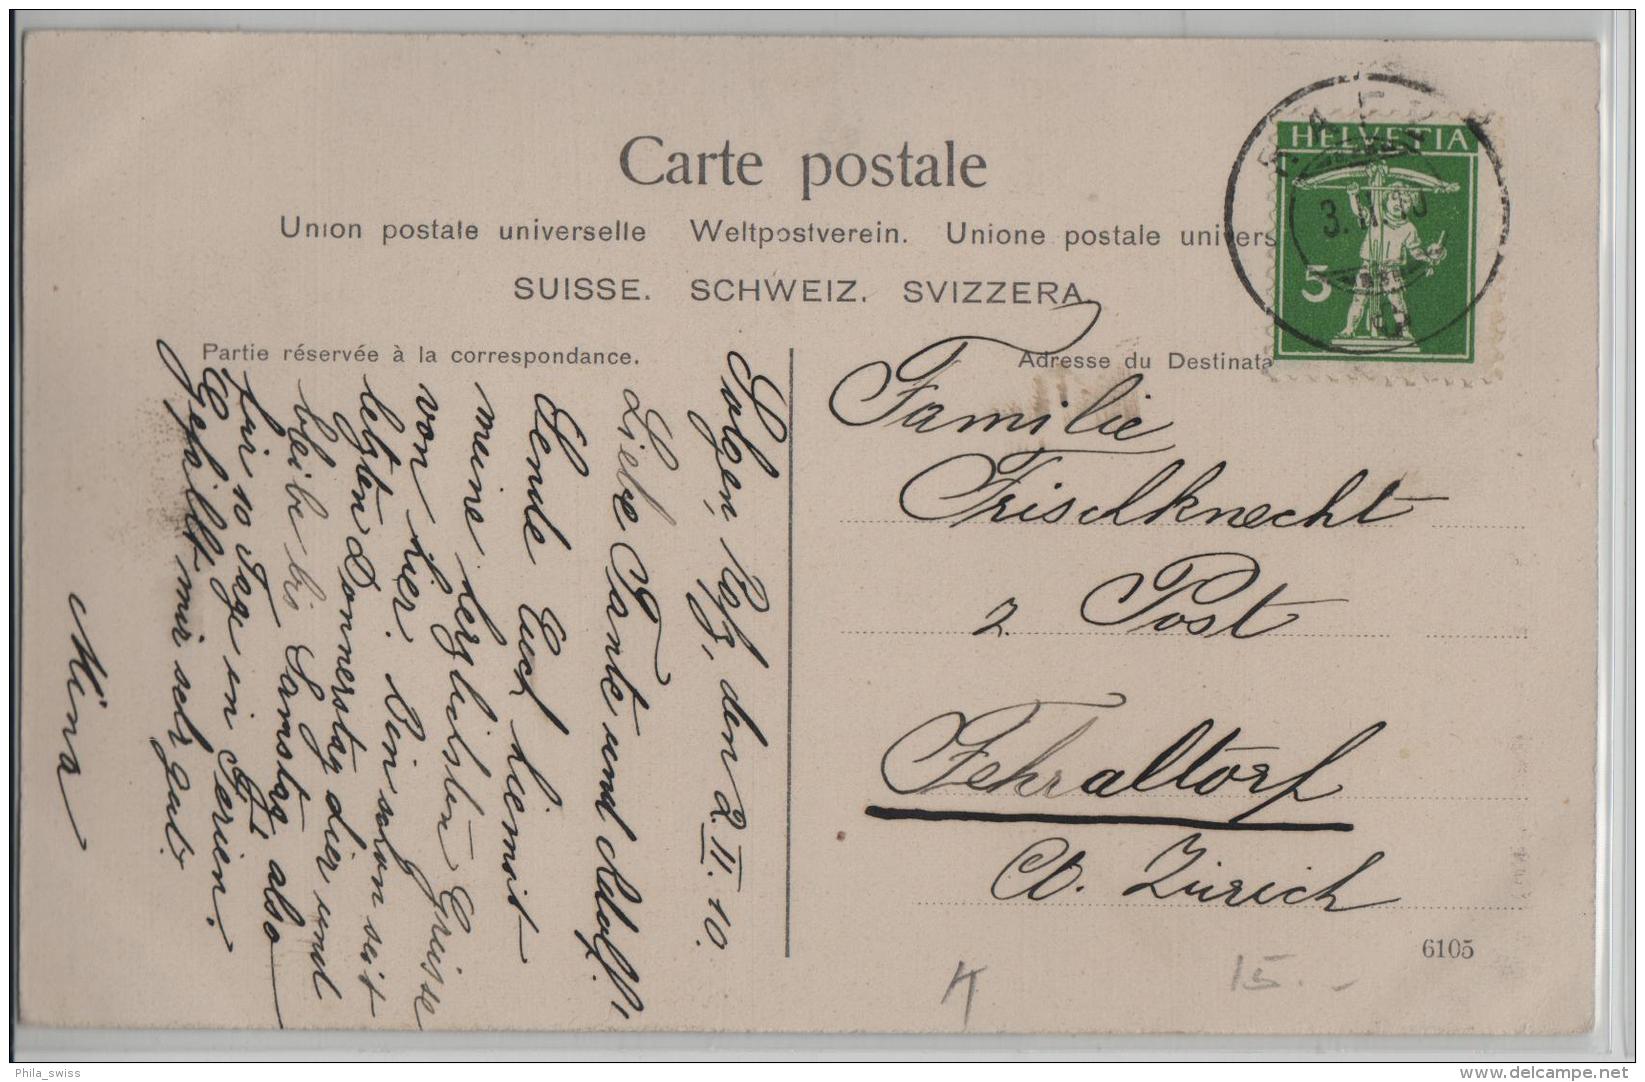 Carte postale
Union postale universelle Weltpostverein. Unione postale univers
SUISSE. SCHWEIZ. SVIZZERA.
Partie réservée à la correspondance.
Adresse du Destinata
HELVETIA
5
3. II. 10
den 2. II. 10.
Liebe Tante und Adolf!
Sende Euch hiemit
meine herzlichsten Grüsse
von hier. Bin schon seit
letzten Donnerstag hier und
bleibe bis Samstag also
für 10 Tage in Ferien.
Gefällt mir sehr gut.
Mina
Familie
Frischknecht
z. Post
Fehraltorf
Ct. Zürich
6105
15.-
Phila_swiss
www.delcampe.net